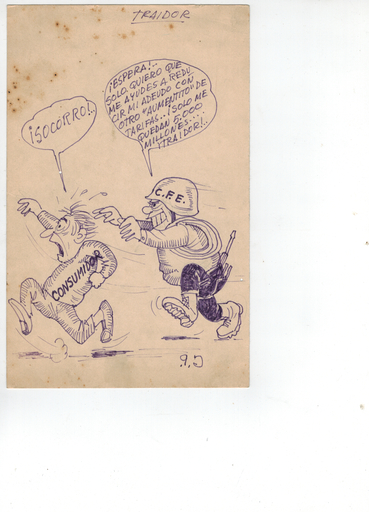 TRAIDOR
¡SOCORRO!..
¡ESPERA!..
SOLO QUIERO QUE
ME AYUDES A REDU
CIR MI ADEUDO CON
OTRO "AUMENTITO" DE
TARIFAS.. ¡SOLO ME
QUEDAN 5.000
MILLONES...
¡TRAIDOR!..
C.F.E.
CONSUMIDOR